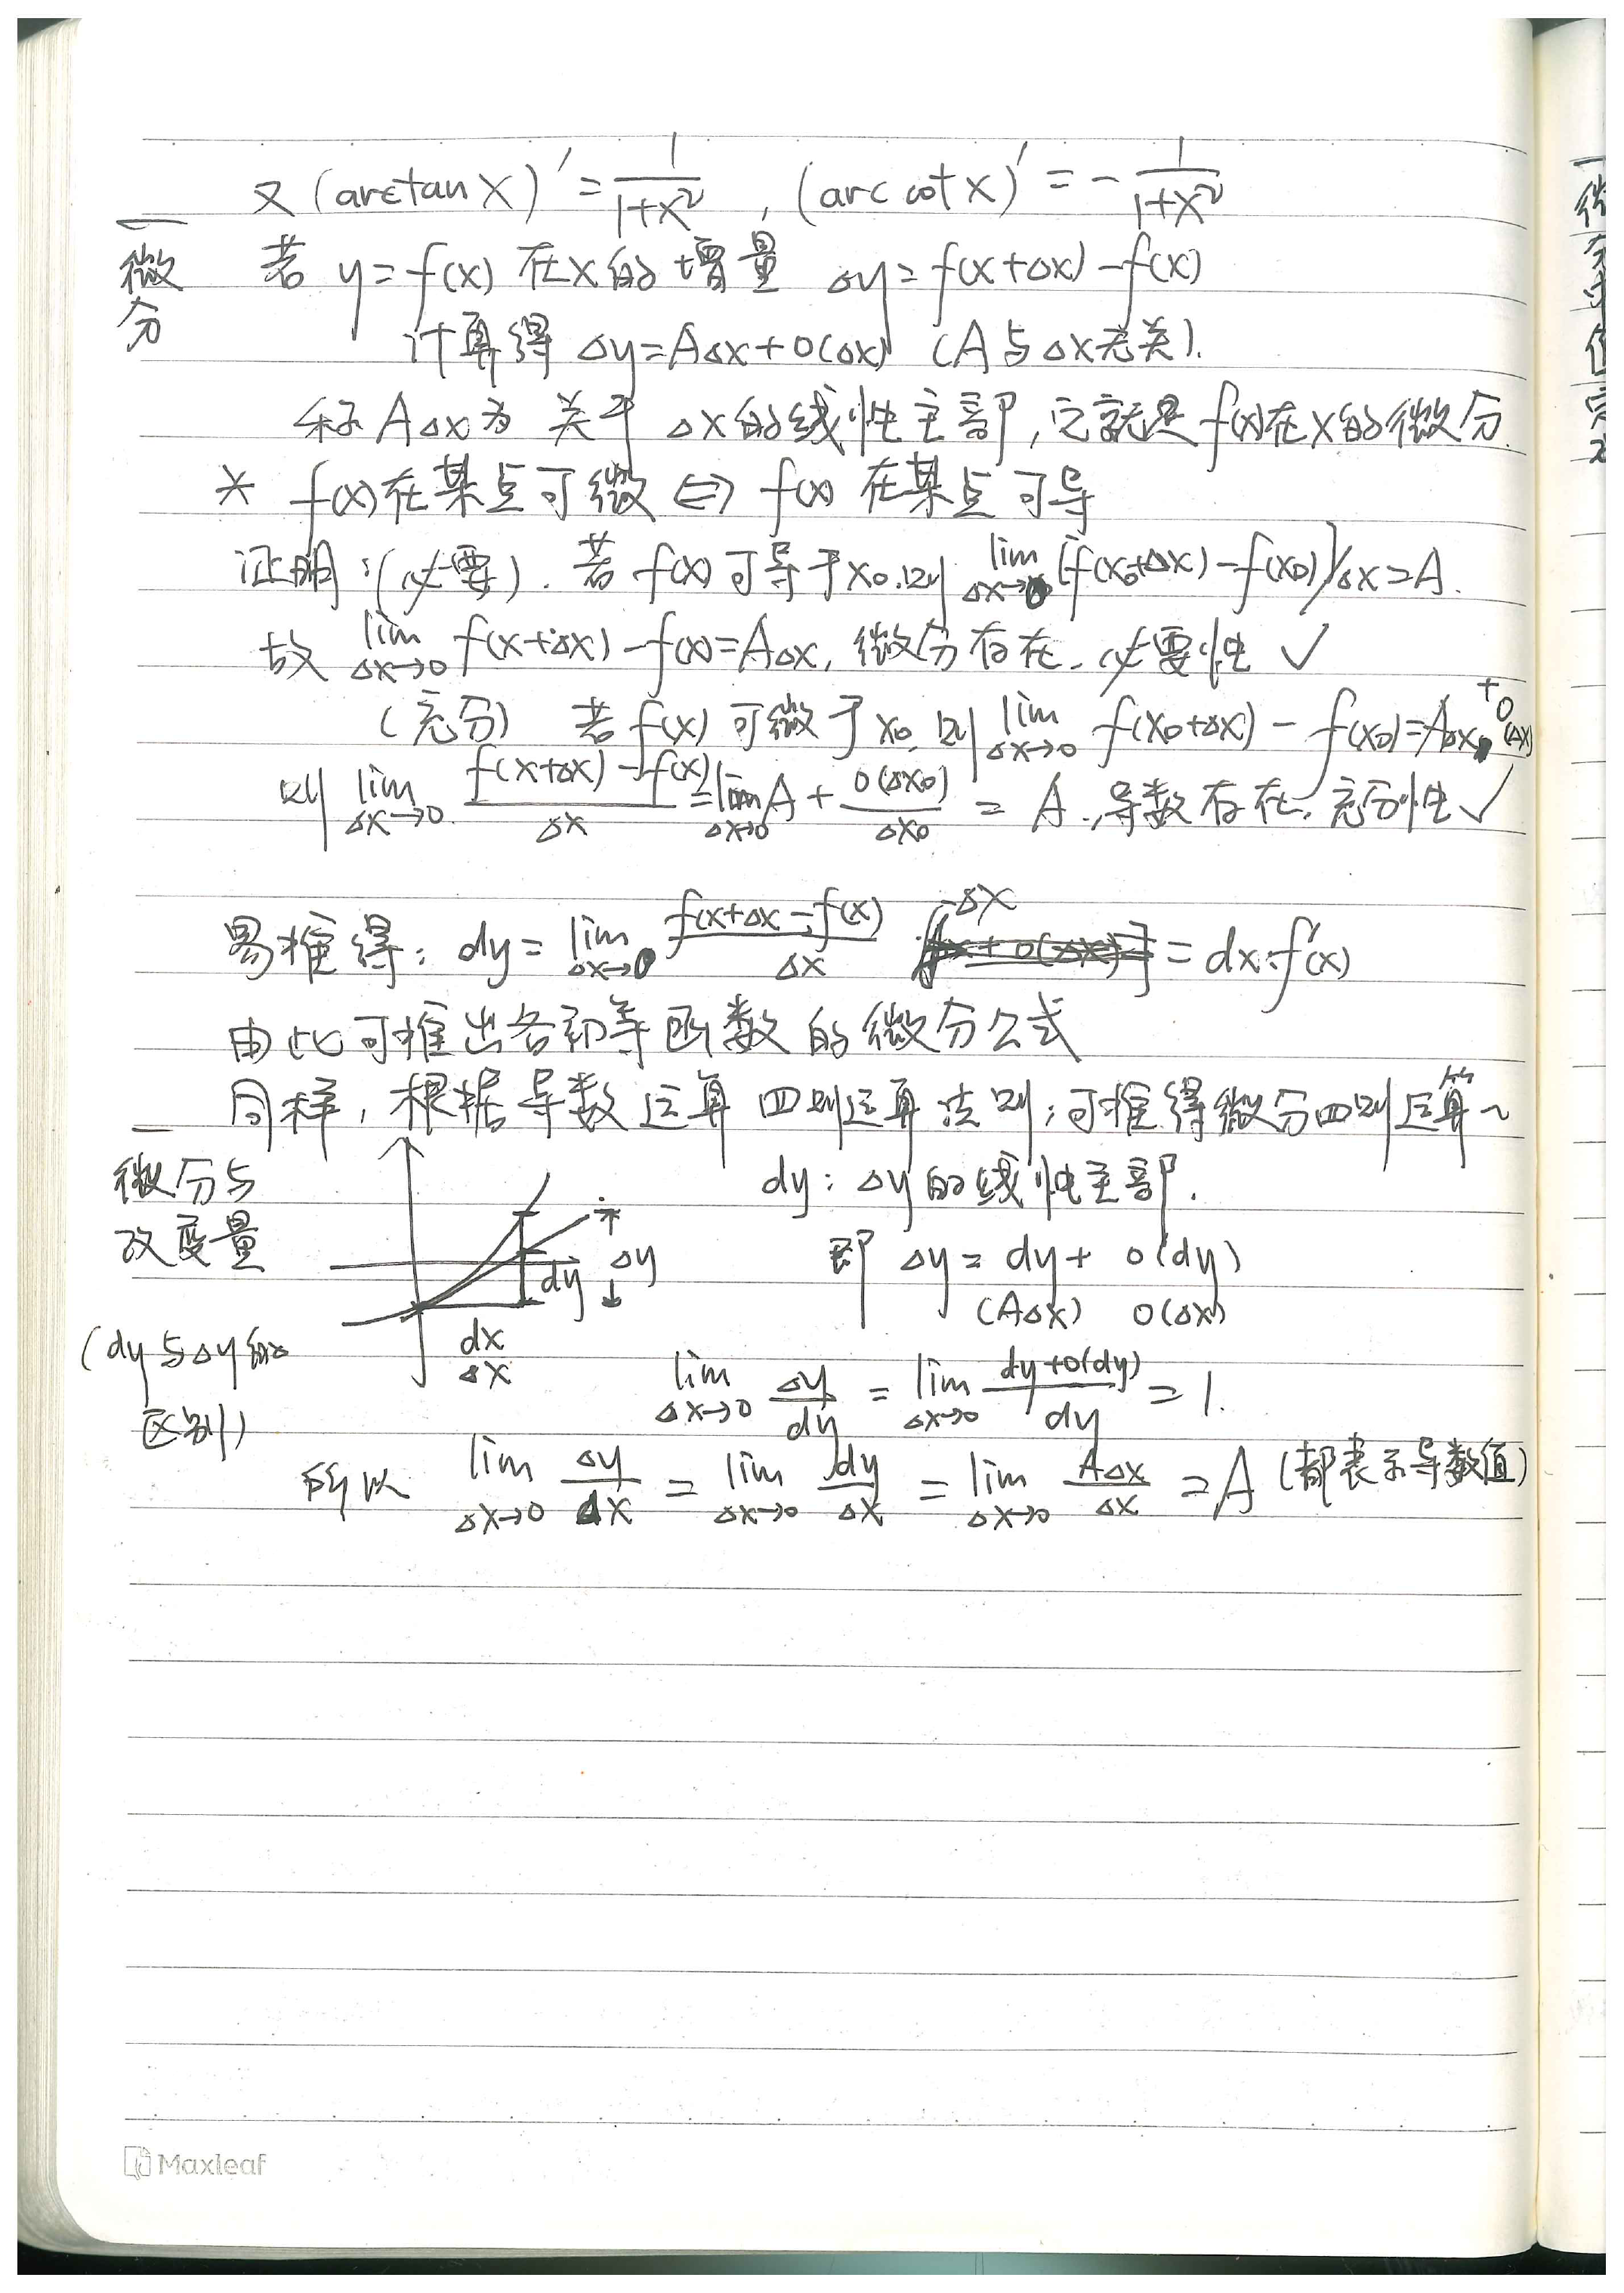 又 (arctan x)′ = 1/(1+x²) , (arc cot x)′ = - 1/(1+x²)
微分
若 y=f(x) 在x的增量 Δy=f(x+Δx)-f(x)
计算得 Δy=AΔx+o(Δx) (A与Δx无关).
称 AΔx为 关于 Δx的线性主部,它就是f(x)在x的微分.
* f(x)在某点可微 ⇔ f(x) 在某点可导
证明:(必要). 若 f(x)可导于x₀.则 lim Δx→0 [f(x₀+Δx)-f(x₀)]/Δx=A.
故 lim Δx→0 f(x+Δx)-f(x)=AΔx, 微分存在. 必要性 ✓
(充分) 若 f(x) 可微于 x₀, 则 lim Δx→0 f(x₀+Δx) - f(x₀)=AΔx+o(Δx)
则 lim Δx→0 (f(x+Δx)-f(x))/Δx = lim Δx→0 A + o(Δx₀)/Δx₀ = A, 导数存在, 充分性 ✓
易推得: dy= lim Δx→0 (f(x+Δx-f(x))/Δx ·Δx = dx·f′(x)
由此可推出各初等函数的微分公式
同样, 根据导数运算四则运算法则,可推得微分四则运算~
微分与
改变量
(dy与Δy的
区别)
dy Δy
dx
Δx
dy: Δy的线性主部.
即 Δy= dy+ o(dy)
(AΔx) o(Δx)
lim Δx→0 Δy/dy = lim Δx→0 (dy+o(dy))/dy = 1.
所以 lim Δx→0 Δy/Δx = lim Δx→0 dy/Δx = lim Δx→0 AΔx/Δx = A (都表示导数值)
Maxleaf